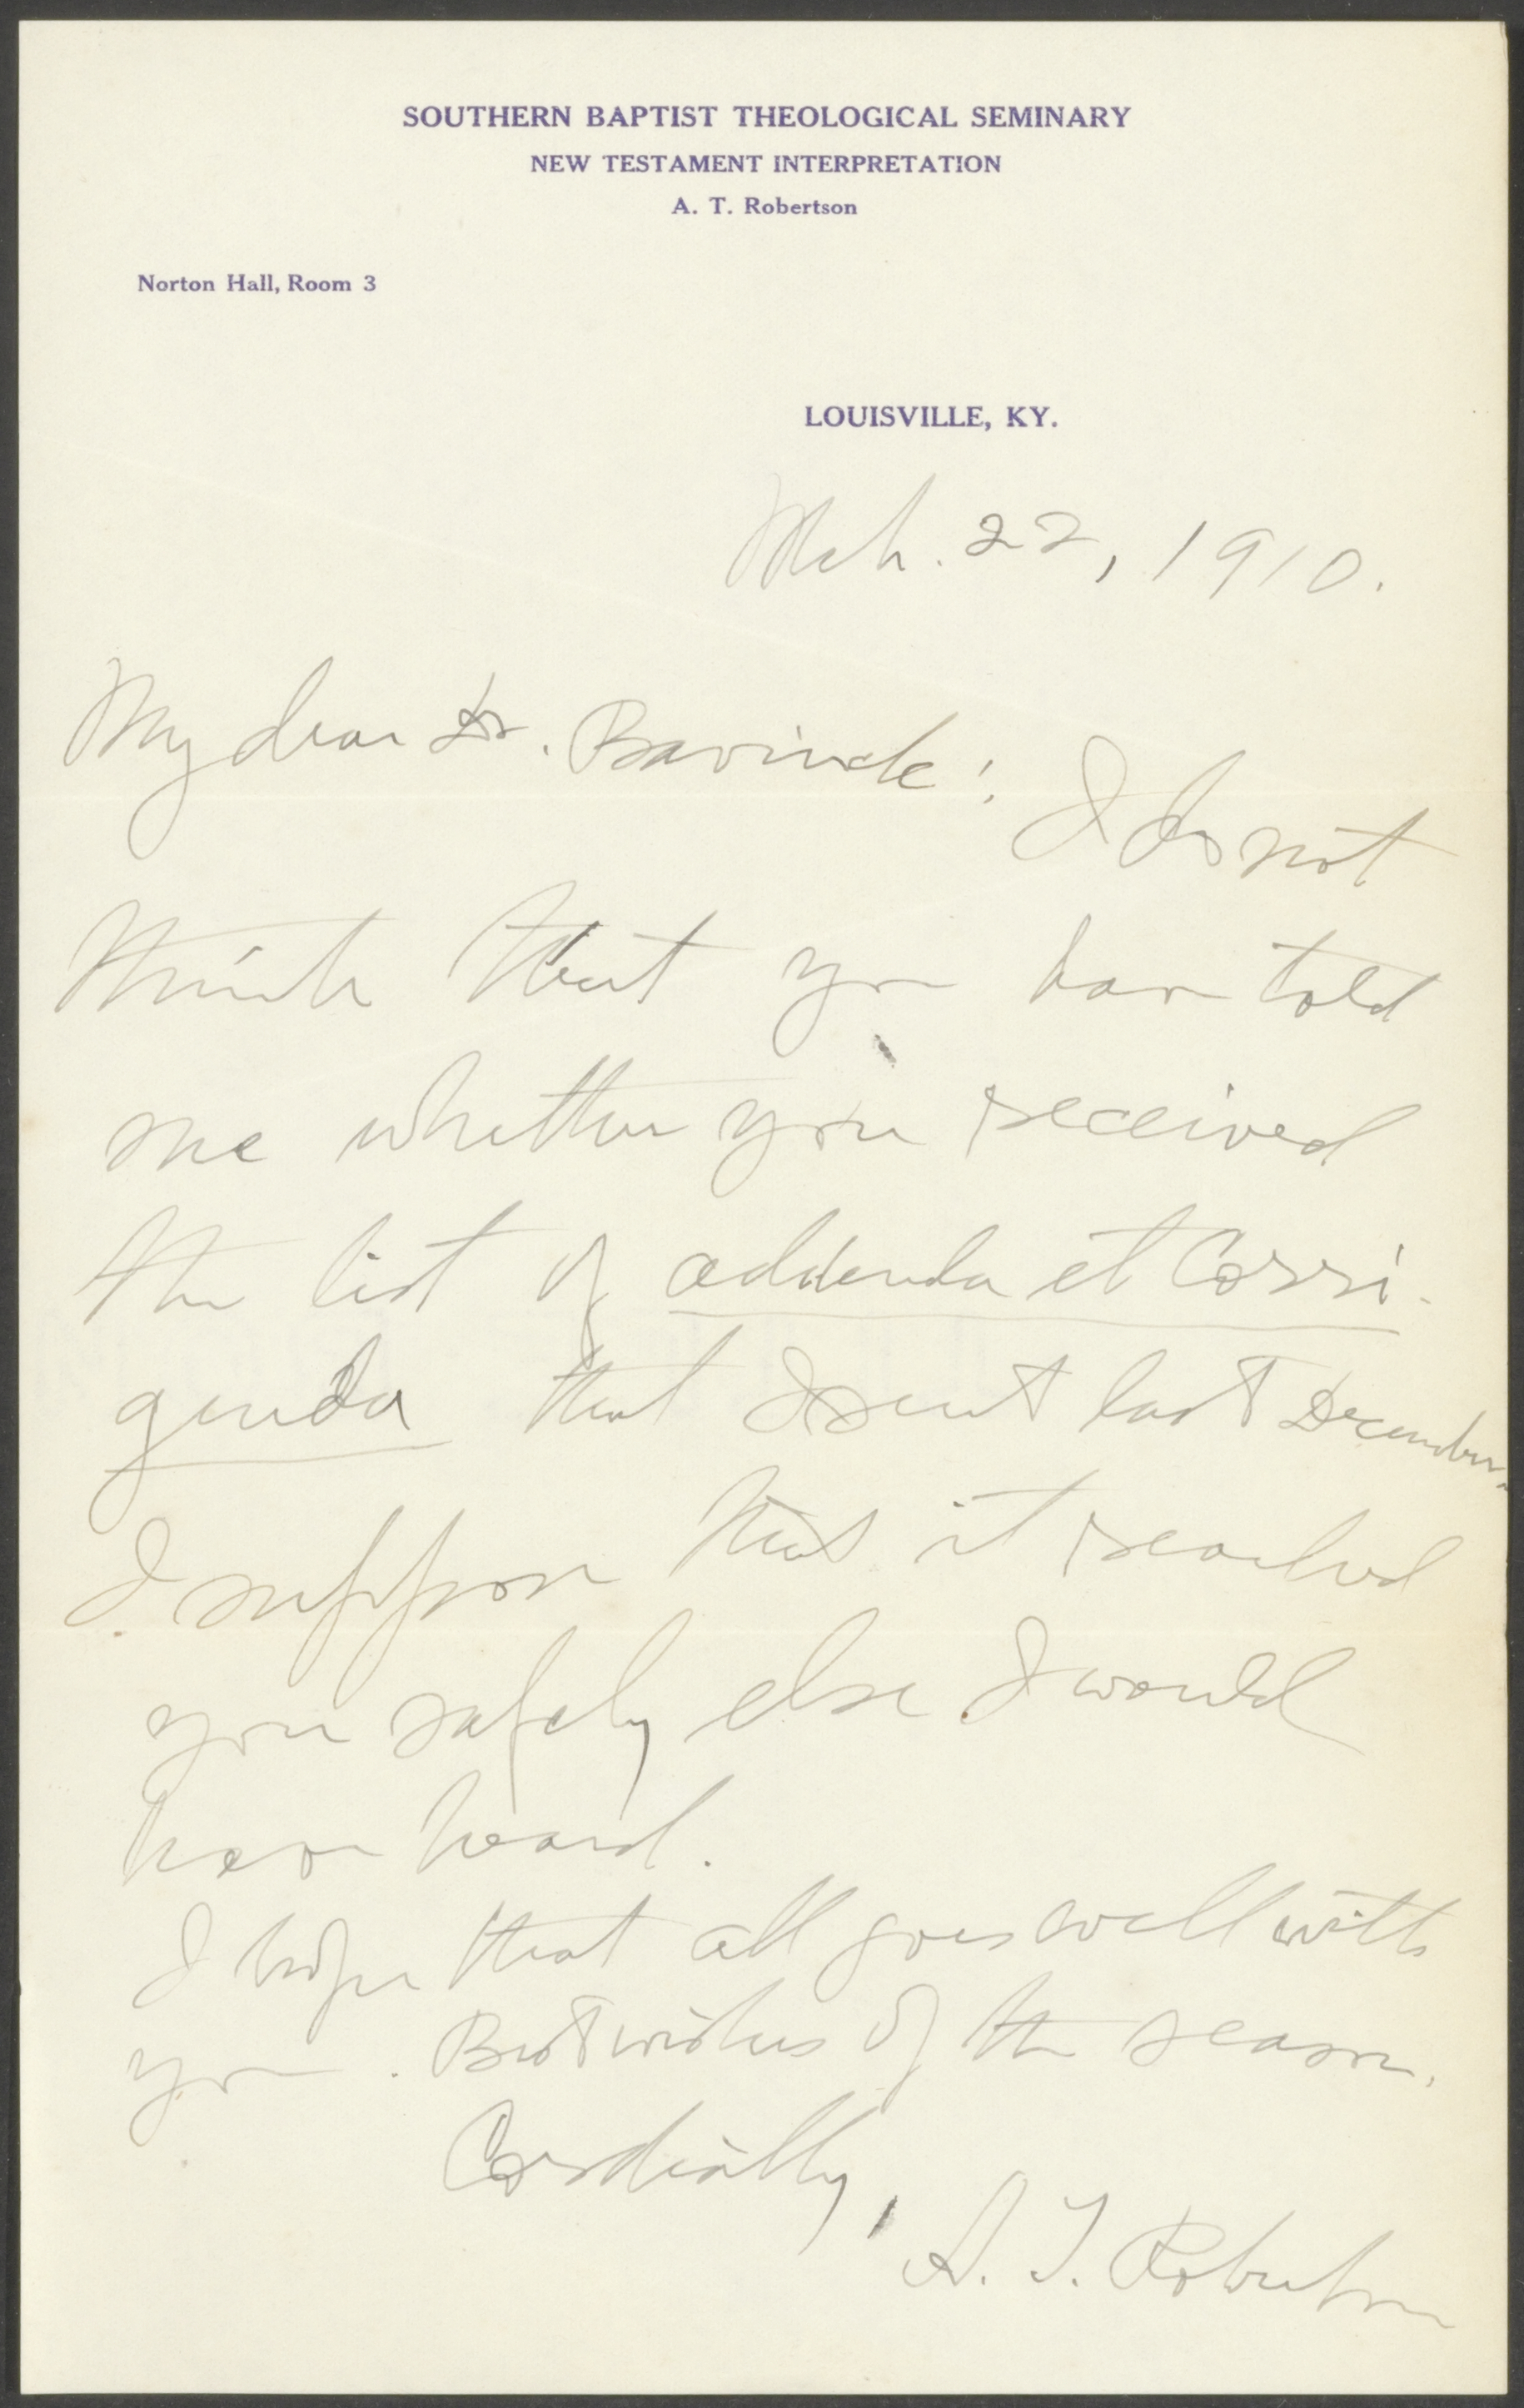 SOUTHERN BAPTIST THEOLOGICAL SEMINARY
NEW TESTAMENT INTERPRETATION
A. T. Robertson
Norton Hall, Room 3
LOUISVILLE, KY.
Mch. 22, 1910.
My dear Dr. Bavinck:
I do not
think that you have told
me whether you received
the list of addenda et Corri-
genda that I sent last December.
I suppose that it reached
you safely else I would
have heard.
I hope that all goes well with
you. Best wishes of the season.
Cordially,
A. T. Robertson